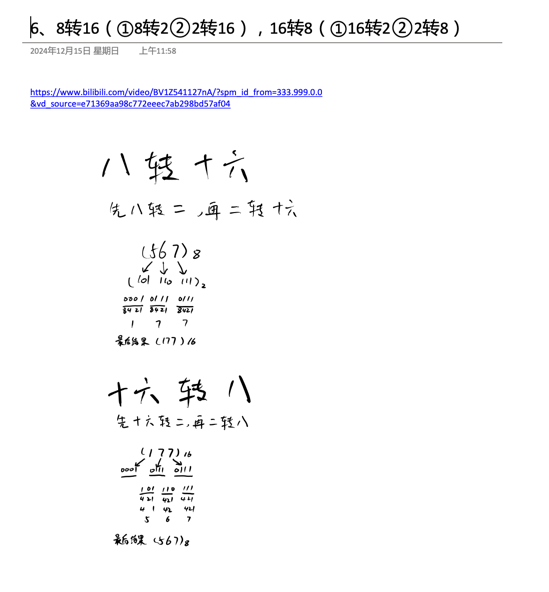 6、8转16（①8转2②2转16），16转8（①16转2②2转8）
2024年12月15日 星期日 上午11:58
https://www.bilibili.com/video/BV1Z541127nA/?spm_id_from=333.999.0.0
&vd_source=e71369aa98c772eeec7ab298bd57af04
八转十六
先八转二,再二转十六
(567)8
(101 110 111)2
0001 0111 0111
8421 8421 8421
1 7 7
最后结果 (177)16
十六转八
先十六转二,再二转八
(177)16
0001 0111 0111
101 110 111
421 421 421
4 1 42 421
5 6 7
最后结果 (567)8